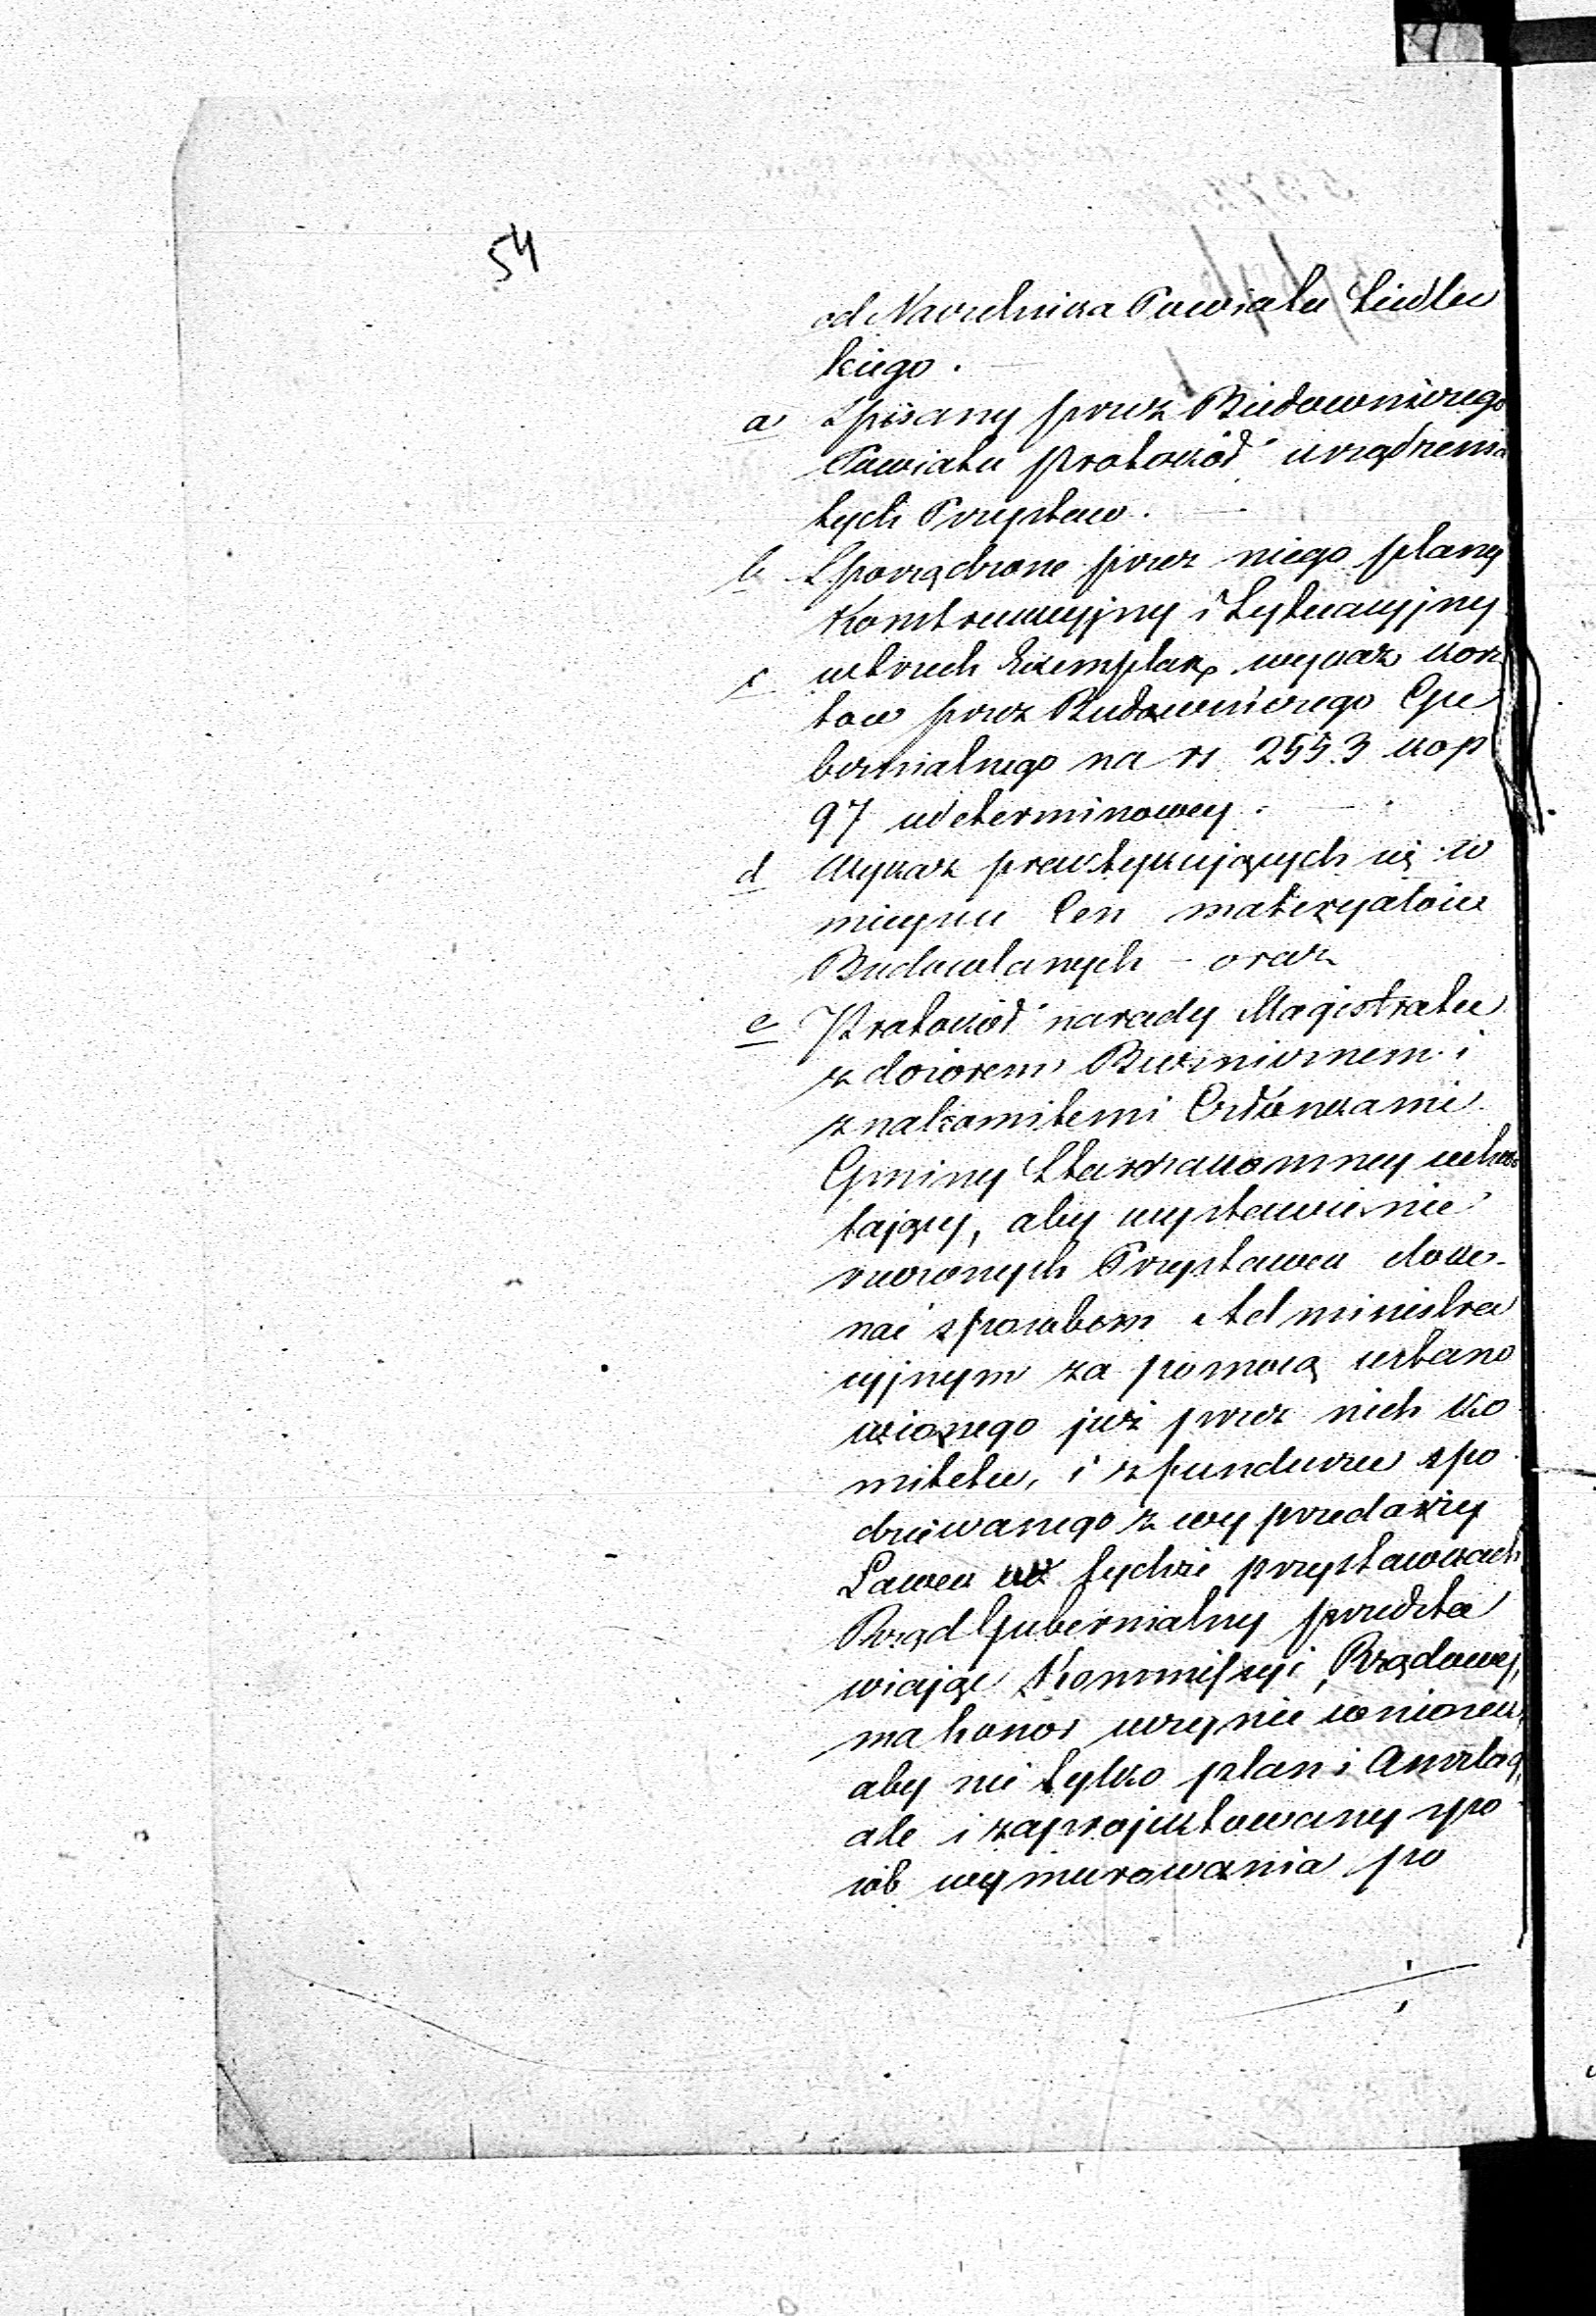 54
od Naczelnika Powiatu Siedlec
kiego.
a Spisany przez Budowniczego
Powiatu protokół urządzenia
tych Przystaw.
b Sporządzone przez niego plany
Konstrukcyjny i Sytuacyjny
c w trzech Exemplarz wykaz kosz
tow przez Budowniczego Gu
bernialnego na rs 2553 kop
97 zdeterminowey.
d Wykaz praktykujących się w
mieyscu Cen materyałów
Budowlanych – oraz
e Protokół narady Magistratu
z dozorem Bużnicznem i
znakomitemi Członkami
Gminy Starozakonney
tający, aby wystawienie
rzeczonych Przystawek doko-
nać sposobem Administra
cyjnym za pomocą ustano
wionego już przez nich Ko
mitetu, i z funduszu spo
dziewanego z wyprzedaży
Ławek w tychże przystawkach
Rząd Gubernialny przedsta
wiając Kommissyi Rządowej,
ma honor uczynić wniosek,
aby nie tylko plan i Anszlag,
ale i zaprojektowany spo
sób wymurowania po